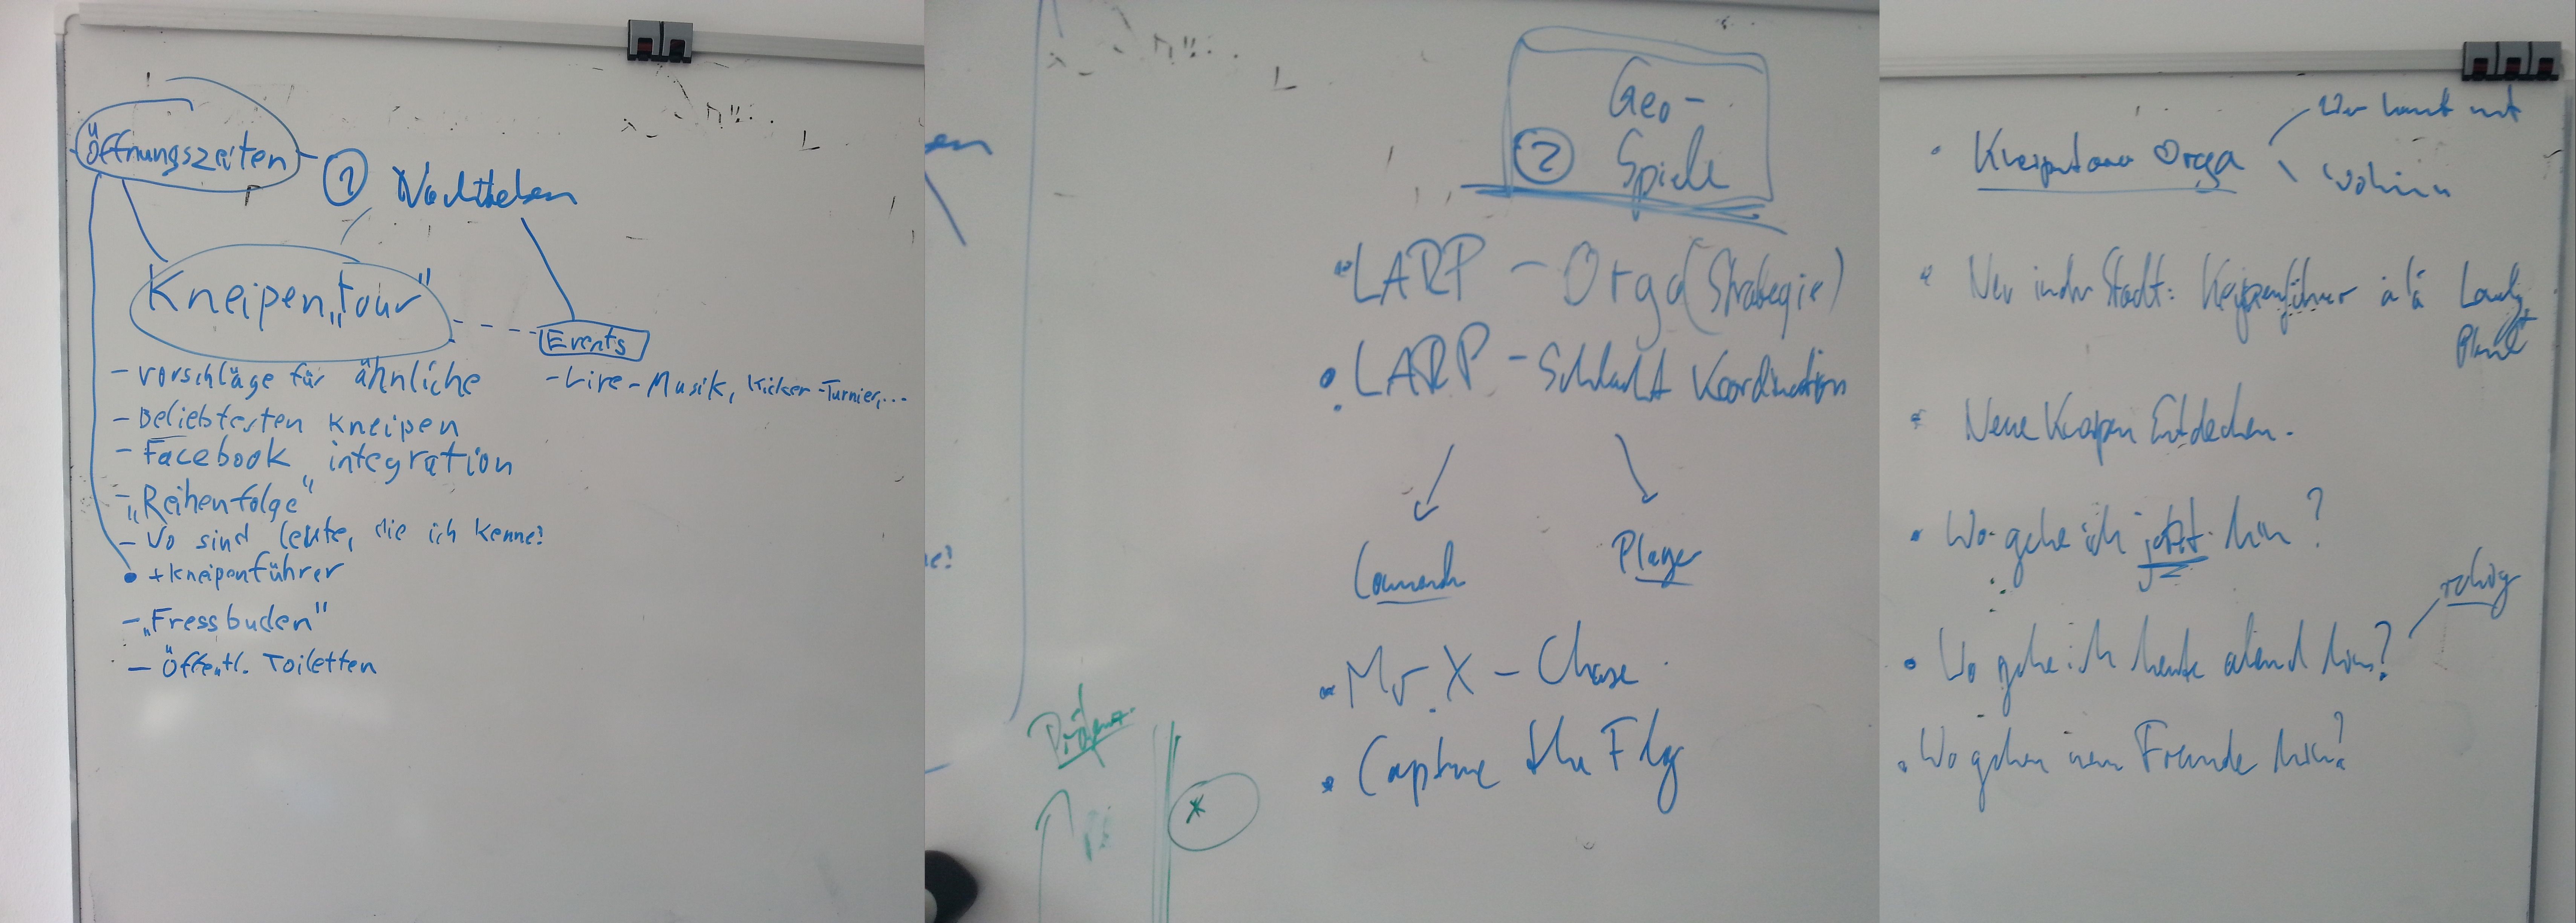 Öffnungszeiten
1 Nachtleben
Kneipen„tour"
Events
- Live-Musik, Kicker-Turnier,...
- Vorschläge für ähnliche
- Beliebtesten Kneipen
- Facebook integration
- „Reihenfolge"
- Wo sind leute, die ich kenne?
• + Kneipenführer
- „Fressbuden"
- Öffentl. Toiletten
Geo-
2 Spiele
• LARP - Orga (Strategie)
• LARP - Schlacht Koordination
Player
• Mr. X - Chase
• Capture the Flag
• Kneipentour Orga
Wer kommt mit
wohin
• Neu in der Stadt: Kneipenführer á lá Lonely
Planet
• Neue Kneipen Entdecken.
• Wo gehe ich jetzt hin?
• Wo gehe ich heute abend hin?
• Wo gehen meine Freunde hin?